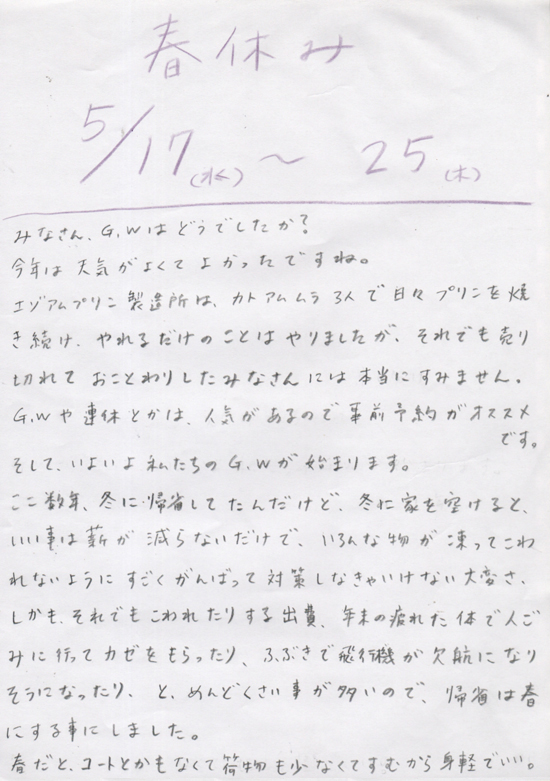 春休み
5/17(水)～25(木)
みなさん、G.Wはどうでしたか?
今年は天気がよくてよかったですね。
エゾアムプリン製造所は、カトアムムラ3人で日々プリンを焼
き続け、やれるだけのことはやりましたが、それでも売り
切れておことわりしたみなさんには本当にすみません。
G.Wや連休とかは、人気があるので事前予約がオススメ
です。
そして、いよいよ私たちのG.Wが始まります。
ここ数年、冬に帰省してたんだけど、冬に家を空けると、
いい事は薪が減らないだけで、いろんな物が凍ってこわ
れないようにすごくがんばって対策しなきゃいけない大変さ、
しかも、それでもこわれたりする出費、年末の疲れた体で人ご
みに行ってカゼをもらったり、ふぶきで飛行機が欠航になり
そうになったり、と、めんどくさい事が多いので、帰省は春
にする事にしました。
春だと、コートとかもなくて荷物も少なくてすむから身軽でいい。